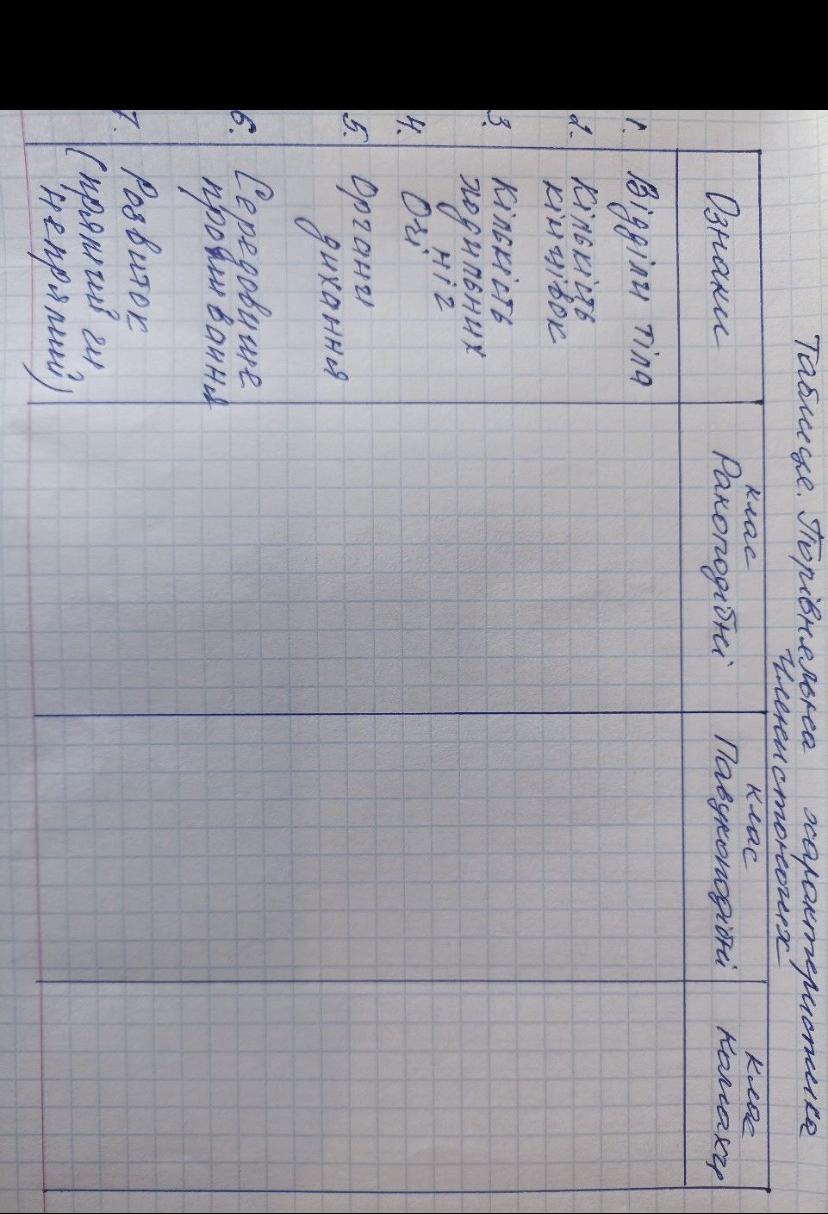 Таблиця. Порівняльна характеристика
Членистоногих
Ознаки
клас
Ракоподібні
клас
Павукоподібні
клас
Комахи
1. Відділи тіла
2. Кількість
кінцівок
3. Кількість
ходильних
ніг
4. Очі
5. Органи
дихання
6. Середовище
проживання
7. Розвиток
(прямий чи
непрямий)